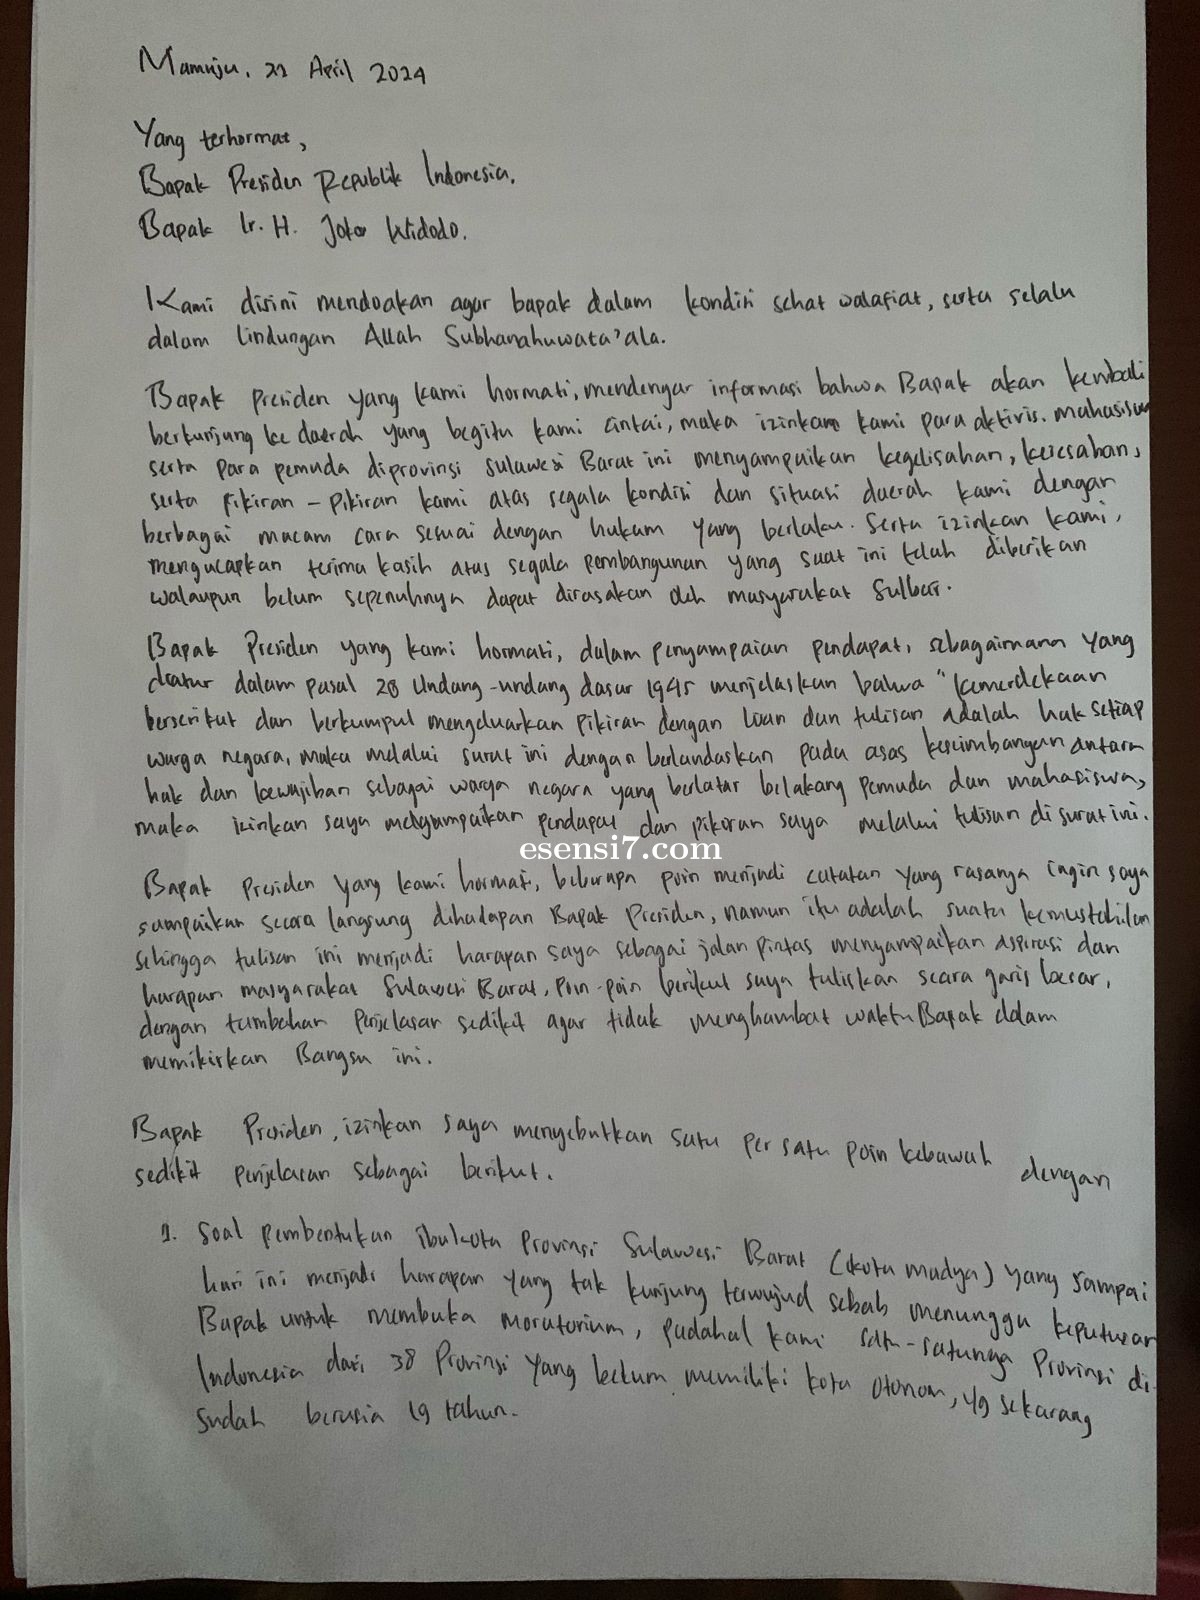 Mamuju, 21 April 2024
Yang terhormat,
Bapak Presiden Republik Indonesia.
Bapak Ir. H. Joko Widodo.
Kami disini mendoakan agar bapak dalam kondisi sehat walafiat, serta selalu
dalam lindungan Allah Subhanahuwata'ala.
Bapak Presiden yang kami hormati, mendengar informasi bahwa Bapak akan kembali
berkunjung ke daerah yang begitu kami cintai, maka izinkan kami para aktivis. mahasiswa
serta para pemuda diprovinsi Sulawesi Barat ini menyampaikan kegelisahan, keresahan,
serta fikiran - pikiran kami atas segala kondisi dan situasi daerah kami dengan
berbagai macam cara sesuai dengan hukum yang berlaku. Serta izinkan kami,
mengucapkan terima kasih atas segala pembangunan yang saat ini telah diberikan
walaupun belum sepenuhnya dapat dirasakan oleh masyarakat Sulbar.
Bapak Presiden yang kami hormati, dalam penyampaian pendapat, sebagaimana yang
diatur dalam pasal 28 Undang-undang dasar 1945 menjelaskan bahwa "kemerdekaan
berserikat dan berkumpul mengeluarkan pikiran dengan lisan dan tulisan adalah hak setiap
warga negara, maka melalui surat ini dengan berlandaskan pada asas keseimbangan antara
hak dan kewajiban sebagai warga negara yang berlatar belakang pemuda dan mahasiswa,
maka izinkan saya menyampaikan pendapat dan pikiran saya melalui tulisan di surat ini.
esensi7.com
Bapak Presiden yang kami hormati, beberapa poin menjadi catatan yang rasanya ingin saya
sampaikan secara langsung dihadapan Bapak Presiden, namun itu adalah suatu kemustahilan
sehingga tulisan ini menjadi harapan saya sebagai jalan pintas menyampaikan aspirasi dan
harapan masyarakat Sulawesi Barat, poin-poin berikut saya tuliskan secara garis besar,
dengan tambahan penjelasan sedikit agar tidak menghambat waktu Bapak dalam
memikirkan Bangsa ini.
Bapak Presiden, izinkan saya menyebutkan satu per satu poin kebawah dengan
sedikit penjelasan sebagai berikut.
1. Soal pembentukan ibukota Provinsi Sulawesi Barat (kota madya) yang sampai
hari ini menjadi harapan yang tak kunjung terwujud sebab menunggu keputusan
Bapak untuk membuka moratorium, padahal kami satu-satunya Provinsi di
Indonesia dari 38 Provinsi yang belum memiliki kota otonom, yg sekarang
sudah berusia 19 tahun.